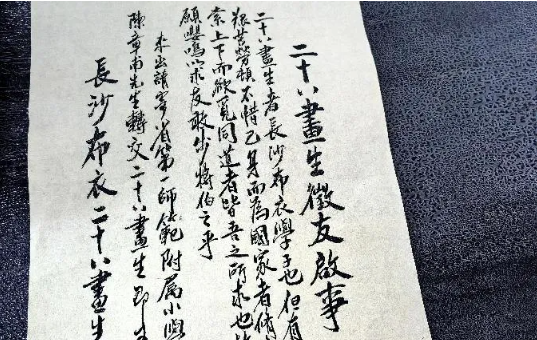 二十八畫生徵友啟事
二十八畫生者長沙布衣學子也但有
艱苦勞頓不惜己身而為國家者脩
索上下而欲覓同道者皆吾之所求也故
願嚶鳴以求友敢步將伯之乎
來函請寄省第一師範附属小學
陳章甫先生轉交二十八畫生即
長沙布衣二十八畫生